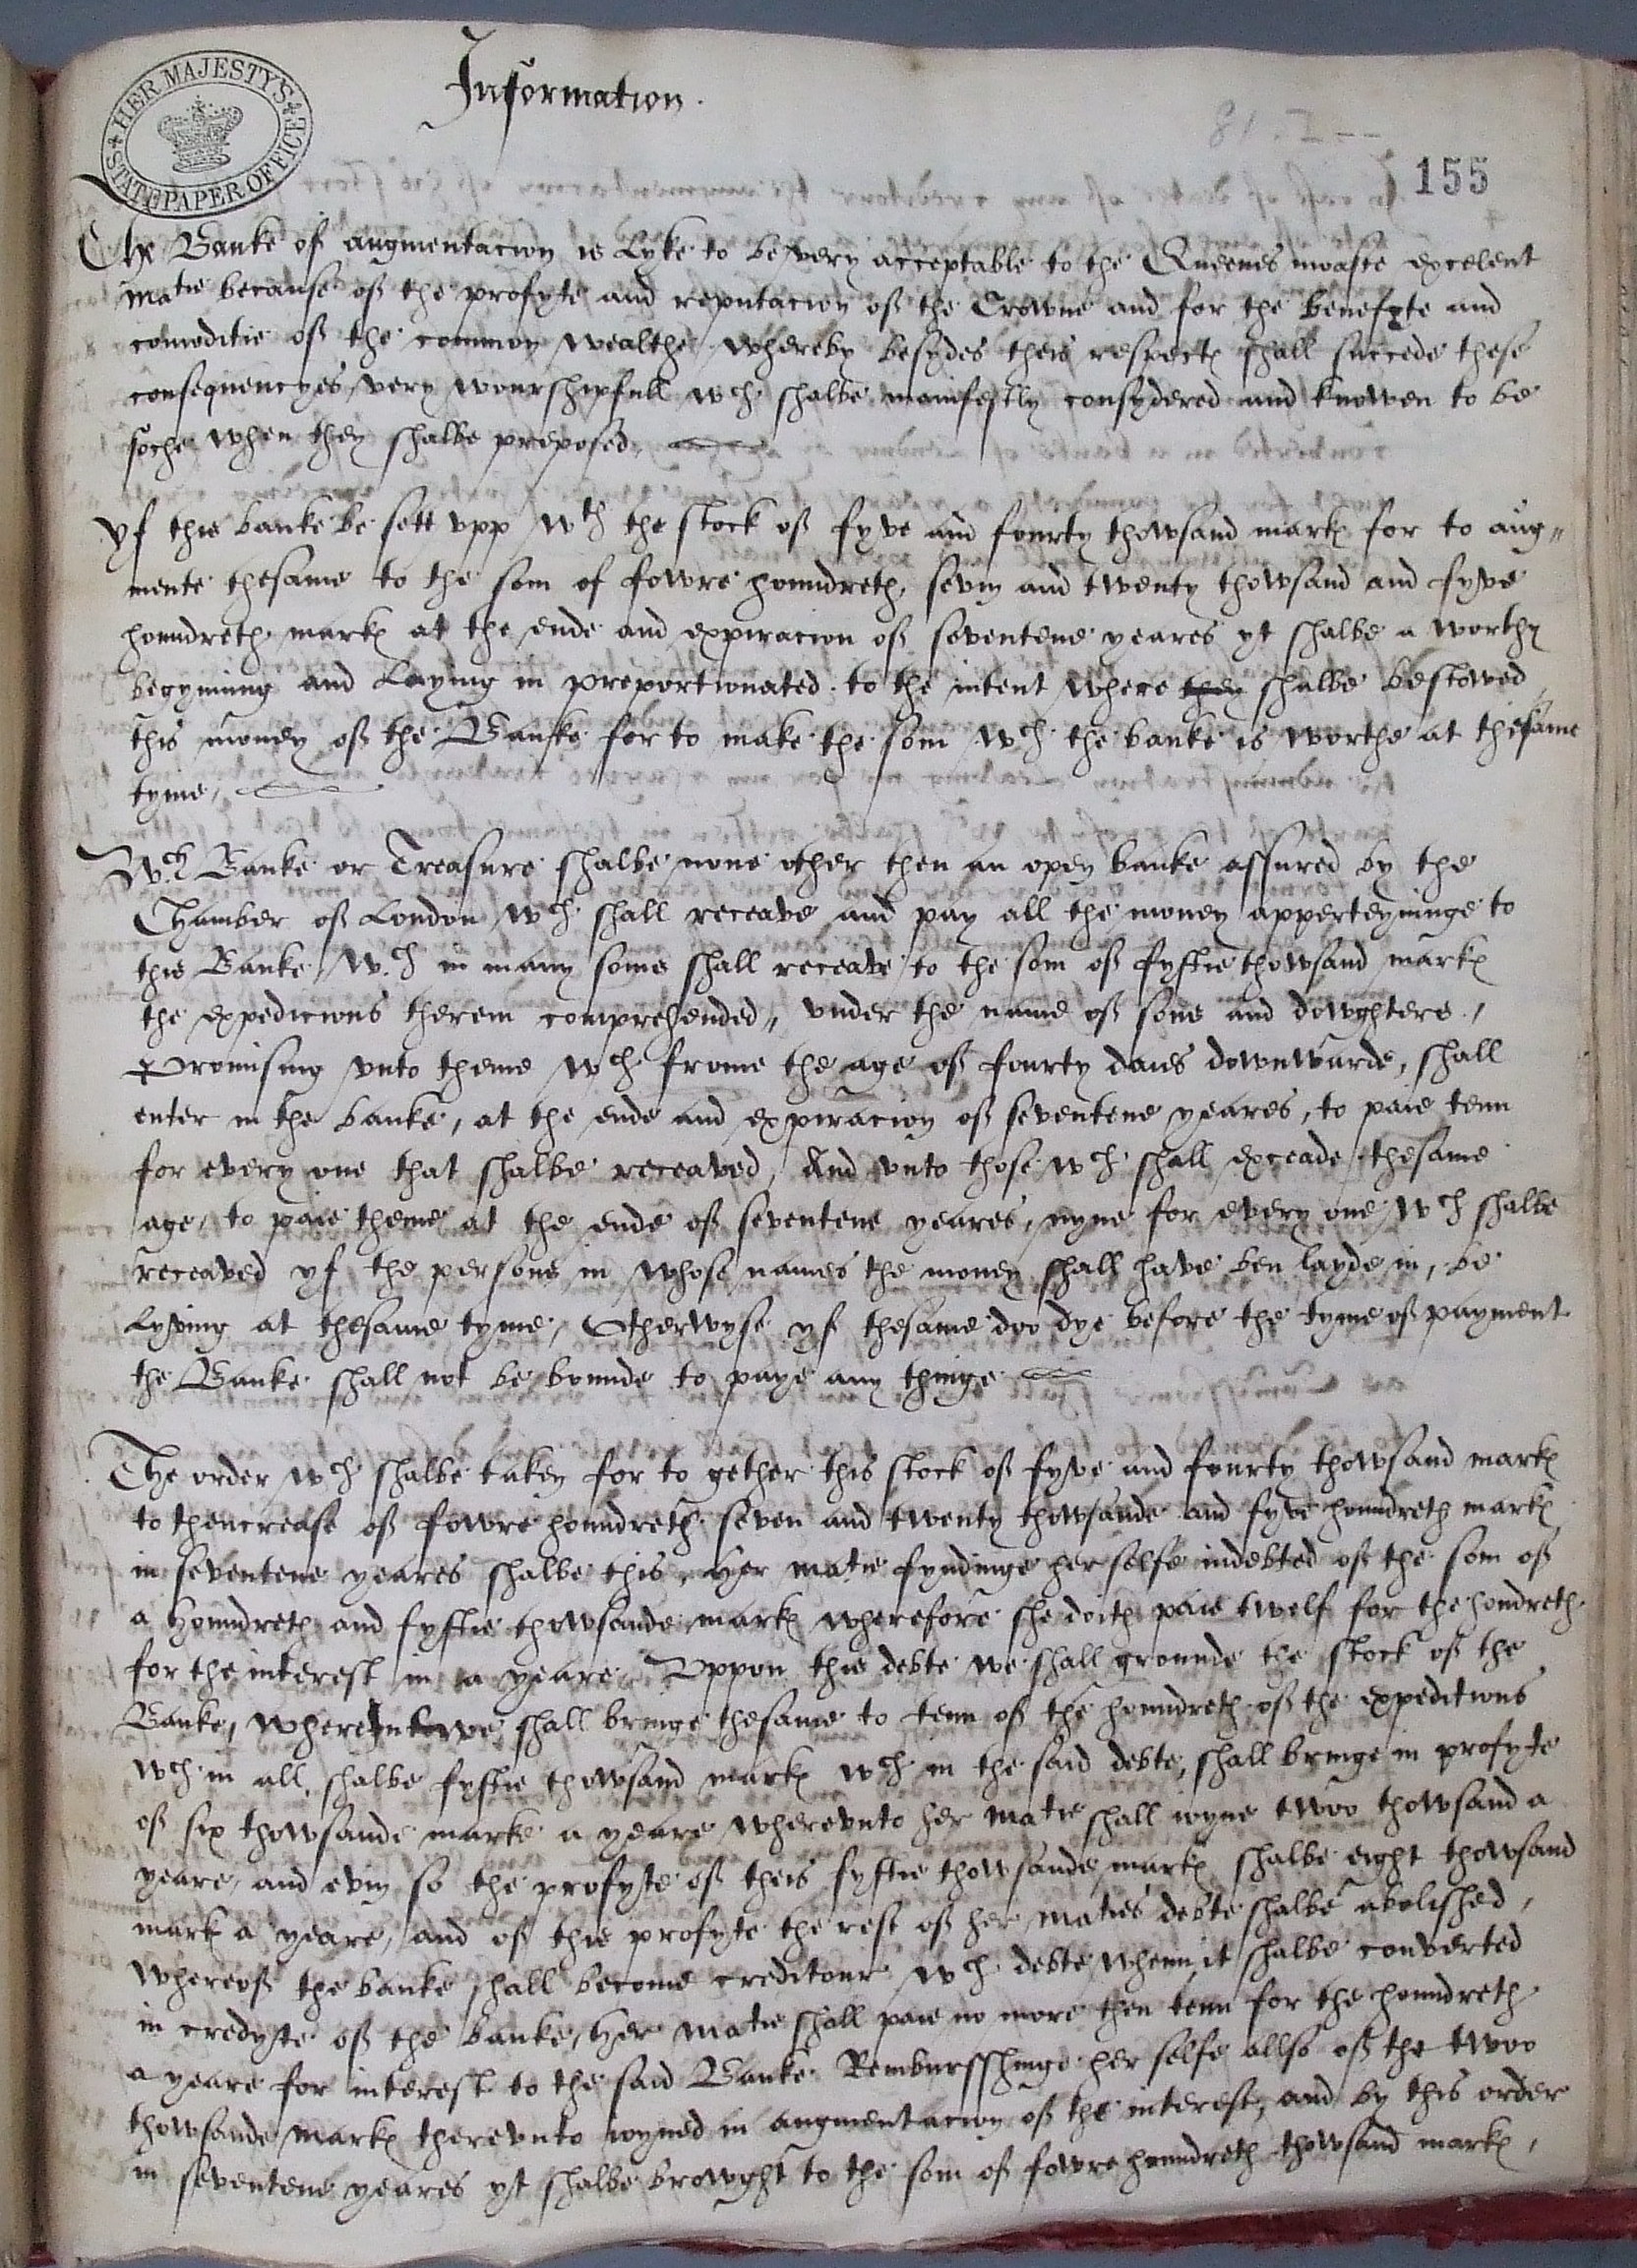 Information.
HER MAJESTY'S STATE PAPER OFFICE
155
The Banke of augmentacion is Lyke to be very acceptable to the Queenes moaste excelent
Matie because of the profyte and reputacion of the Crowne and for the benefyte and
comoditie of the common wealthe whereby besydes theis respects shall succede these
consequencyes very wourshipfull wch shalbe manifestly consydered and knowen to be
soche when they shalbe preposed,
Yf this banke be sett vpp wth the stock of fyve and fourty thowsand marks for to aug„
mente thesame to the som of fowre houndreth, sevin and twenty thowsand and fyve
houndreth marks at the ende and expiracion of seventene yeares yt shalbe a worthy
begynning and Laying in preportionated to the intent where they shalbe bestowed
this money of the Banke for to make the som wch the banke is worthe at thesame
tyme,
Wch Banke or Treasure shalbe none other then an open banke assured by the
Chamber of London wch shall receave and pay all the money apperteyninge to
this Banke, Wch in many soms shall receave to the som of fyftie thowsand marks
the expedicions therein comprehended„ vnder the name of sons and dowghters,
Promising vnto theme wch frome the age of fourty daies downwarde, shall
enter in the banke, at the ende and expiracion of seventene yeares, to paie tenn
for every one that shalbe receaved, And vnto those wch shall exceade thesame
age, to paie theme at the ende of seventene yeares, nyne for every one wch shalbe
receaved yf the persons in whose names the money shall have ben layde in, be
Lyving at thesame tyme, Otherwyse yf thesame doo dye before the tyme of payment
the Banke shall not be bounde to paye any thinge
The order wch shalbe taken for to gether this stock of fyve and fourty thowsand marks
to thencrease of fowre houndreth seven and twenty thowsande and fyve houndreth marks
in seventene yeares shalbe this, Her Matie fyndinge her selfe indebted of the som of
a Houndreth and fyftie thowsande marks wherefore she doith paie twelf for the hondreth
for the interest in a yeare, Vppon this debte we shall grounde the stock of the
Banke, wherein we shall bringe thesame to tenn of the houndreth of the expeditions
wch in all shalbe fyftie thowsand marks wch in the said debte, shall bringe in profyte
of six thowsande marke a yeare wherevnto her Matie shall ioyne twoo thowsand a
yeare, and evin so the profyte of theis fyftie thowsande marks shalbe eight thowsand
mark a yeare, and of this profyte the rest of her Maties debte shalbe abolished,
whereof the banke shall become creditour wch debte whenn it shalbe converted
in credyte of the banke, Her Matie shall paie no more then tenn for the houndreth
a yeare for interest to the said Banke Rembursshinge her selfe allso of the twoo
thowsande marks therevnto ioyned in augmentacion of the interest, and by this order
in seventene yeares yt shalbe browght to the som of fowre houndreth thowsand marks,